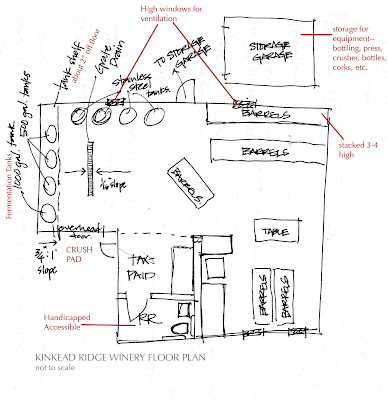 High windows for
ventilation
storage for
equipment--
bottling, press,
crusher, bottles,
corks, etc.
STORAGE
GARAGE
TO STORAGE
GARAGE
tank shelf
about 2" off floor
Grate
Drain
stainless
steel
tanks
BARRELS
stacked 3-4
high
BARRELS
BARRELS
Fermentation Tanks,
1000 gal. tank
500 gal. tanks
1/16" slope
overhead
door
3/4":1"
slope
CRUSH
PAD
TAX
PAID
TABLE
BARRELS
BARRELS
Handicapped
Accessible
RR
KINKEAD RIDGE WINERY FLOOR PLAN
not to scale